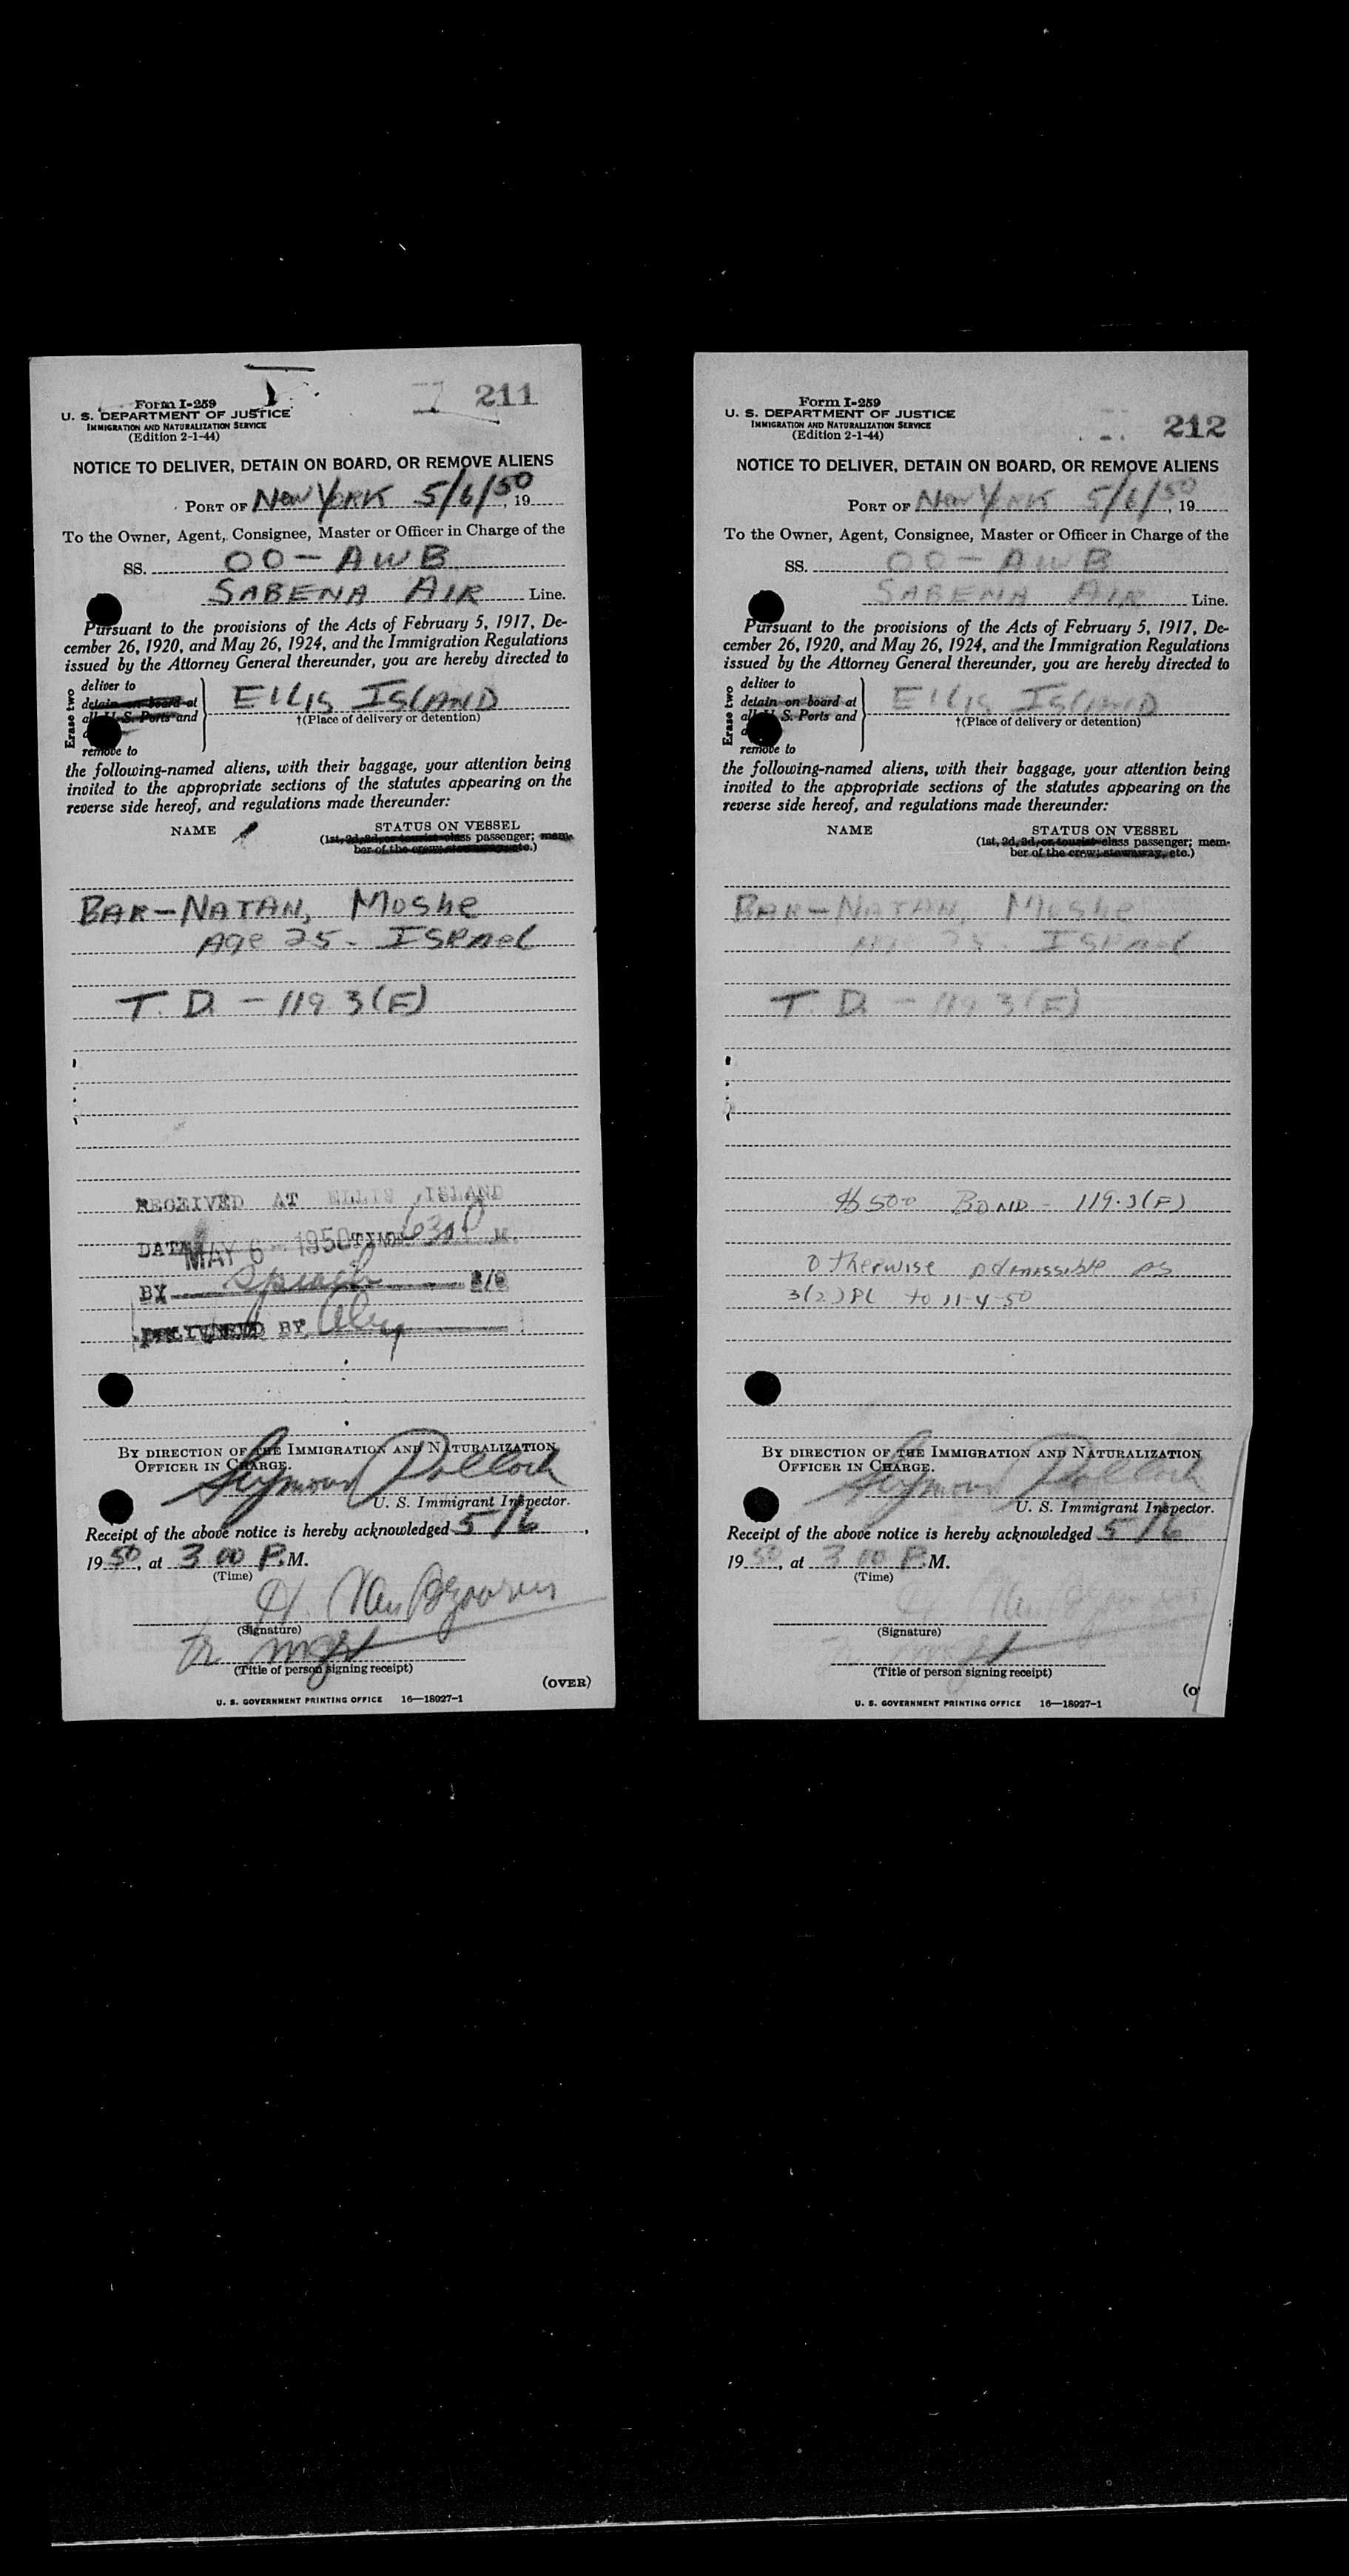 Form I-259
U. S. DEPARTMENT OF JUSTICE
IMMIGRATION AND NATURALIZATION SERVICE
(Edition 2-1-44)
211
NOTICE TO DELIVER, DETAIN ON BOARD, OR REMOVE ALIENS
PORT OF New York 5/6/50, 19
To the Owner, Agent, Consignee, Master or Officer in Charge of the
SS. OO-AWB
SABENA AIR Line.
Pursuant to the provisions of the Acts of February 5, 1917, De-
cember 26, 1920, and May 26, 1924, and the Immigration Regulations
issued by the Attorney General thereunder, you are hereby directed to
Erase two
deliver to
detain on board at
all U. S. Ports and
remove to
ELLIS ISLAND
†(Place of delivery or detention)
the following-named aliens, with their baggage, your attention being
invited to the appropriate sections of the statutes appearing on the
reverse side hereof, and regulations made thereunder:
NAME
STATUS ON VESSEL
(1st, 2d, 3d, or tourist class passenger; mem-
ber of the crew; stowaway, etc.)
BAR-NATAN, Moshe
Age 25 - ISRael
T. D. - 119.3(F)
RECEIVED AT ELLIS ISLAND
DATE MAY 6 - 1950 TIME 630 P M.
BY
DELIVERED BY
BY DIRECTION OF THE IMMIGRATION AND NATURALIZATION
OFFICER IN CHARGE.
Seymour Pollock
U. S. Immigrant Inspector.
Receipt of the above notice is hereby acknowledged 5/6,
19 50, at 3 00 P.M.
(Time)
(Signature)
(Title of person signing receipt)
(OVER)
U. S. GOVERNMENT PRINTING OFFICE 16—18927-1
Form I-259
U. S. DEPARTMENT OF JUSTICE
IMMIGRATION AND NATURALIZATION SERVICE
(Edition 2-1-44)
212
NOTICE TO DELIVER, DETAIN ON BOARD, OR REMOVE ALIENS
PORT OF New York 5/6/50, 19
To the Owner, Agent, Consignee, Master or Officer in Charge of the
SS. OO-AWB
SABENA AIR Line.
Pursuant to the provisions of the Acts of February 5, 1917, De-
cember 26, 1920, and May 26, 1924, and the Immigration Regulations
issued by the Attorney General thereunder, you are hereby directed to
Erase two
deliver to
detain on board at
all U. S. Ports and
remove to
ELLIS ISLAND
†(Place of delivery or detention)
the following-named aliens, with their baggage, your attention being
invited to the appropriate sections of the statutes appearing on the
reverse side hereof, and regulations made thereunder:
NAME
STATUS ON VESSEL
(1st, 2d, 3d, or tourist class passenger; mem-
ber of the crew; stowaway, etc.)
BAR-NATAN, Moshe
Age 25 - ISRael
T. D. - 119.3(F)
$500 BOND - 119.3(F)
Otherwise admissible as
3(2) PL to 11-4-50
BY DIRECTION OF THE IMMIGRATION AND NATURALIZATION
OFFICER IN CHARGE.
Seymour Pollock
U. S. Immigrant Inspector.
Receipt of the above notice is hereby acknowledged 5/6
19 50, at 3 00 P.M.
(Time)
(Signature)
(Title of person signing receipt)
(O
U. S. GOVERNMENT PRINTING OFFICE 16—18927-1